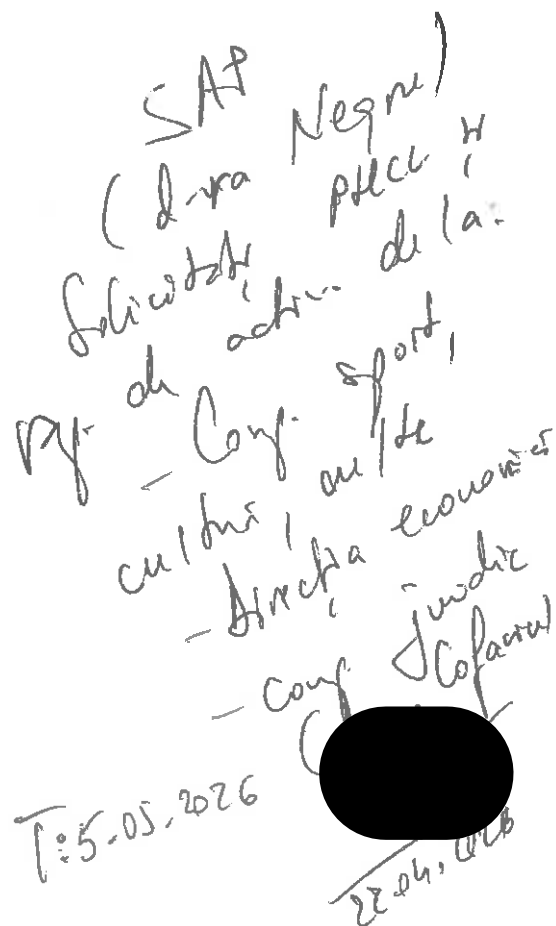 SAP
(d-na Negru)
Solicitați PHCL și
rap. de activ. de la:
- Comp. sport,
cultură, culte
- Direcția economică
- Comp. juridic
(Cofariu)
T: 5.05.2026
22.04.2026